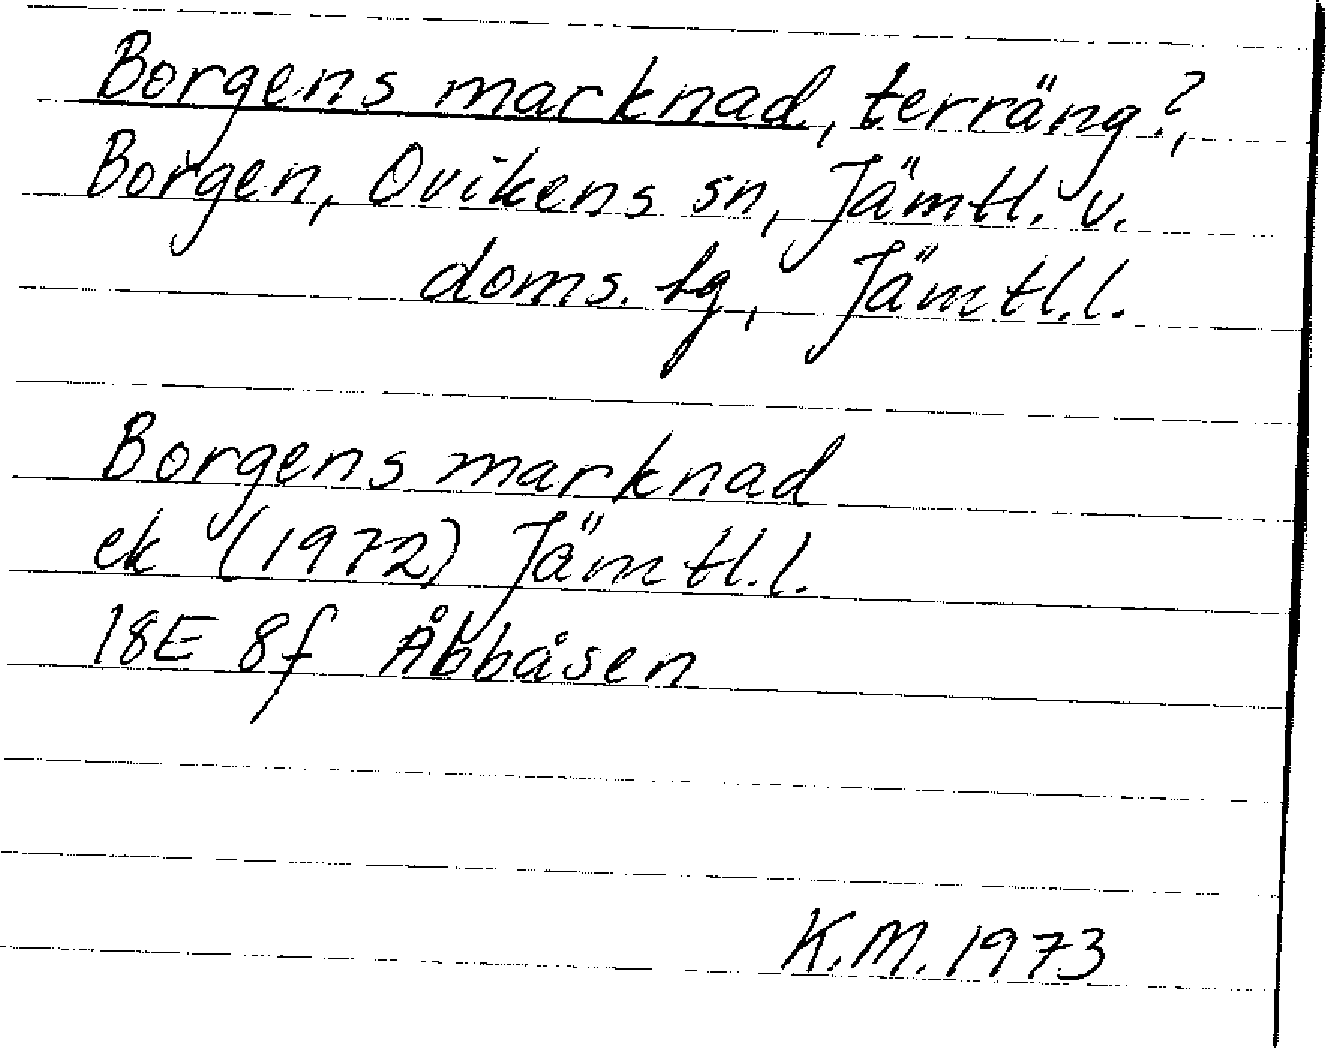 Borgens marknad, terräng?,
Borgen, Ovikens sn, Jämtl. v.
doms. lg, Jämtl.l.
Borgens marknad
ek (1972) Jämtl.l.
18E 8f Åbbåsen
K.M. 1973